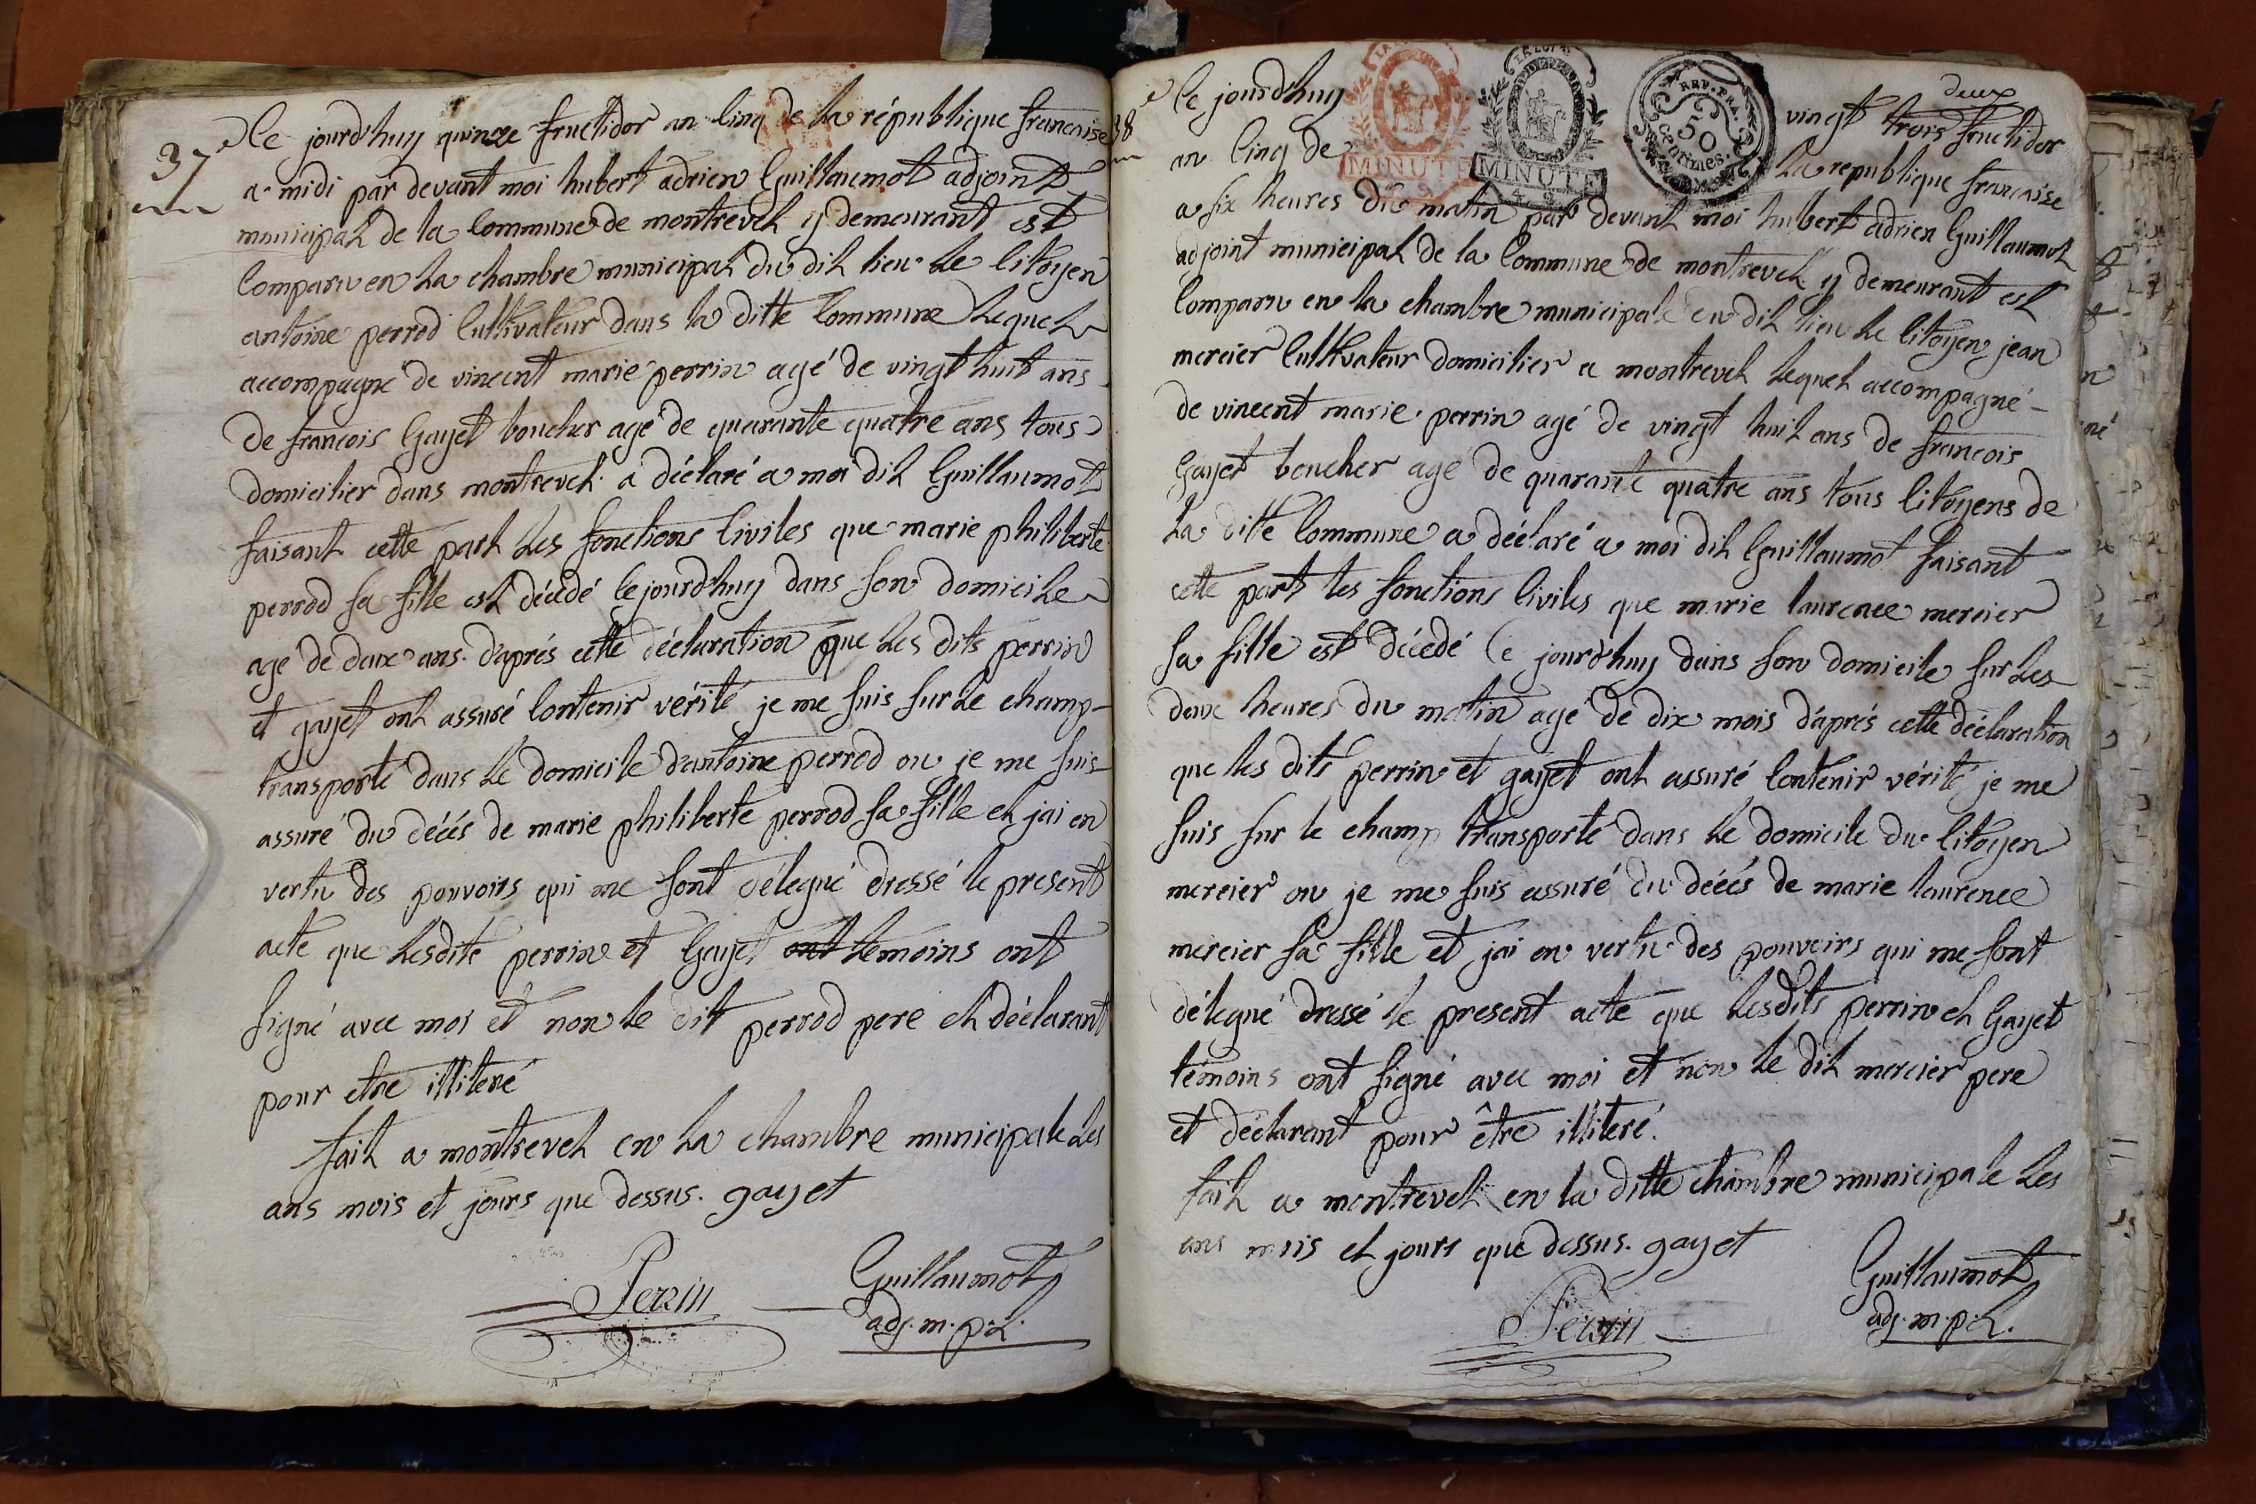 37e
Ce jourd'huy quinze fructidor an Cinq de la république francaise
a midi par devant moi hubert adrien Guillaumot adjoint
municipal de la Commune de montrevel y demeurant est
Comparu en la chambre municipal du dit lieu le Citoyen
antoine perrod Cultivateur dans la ditte Commune lequel
accompagné de vincent marie perrin agé de vingt huit ans
de francois Gayet boucher agé de quarante quatre ans tous
domicilier dans montrevel a déclaré a moi dit Guillaumot
faisant cette part les fonctions Civiles que marie philiberte
perrod sa fille est décédé cejourd'huy dans son domicile
age de deux ans. d'aprés cette déclaration que les dits perrin
et gayet ont assuré Contenir vérité je me suis sur le champ
transporté dans le domicile d'antoine perrod ou je me suis
assuré du décés de marie philiberte perrod sa fille et jai en
vertu des pouvoirs qui me sont délegué dressé le present
acte que lesdits perrin et Gayet ont temoins ont
signé avec moi et non le dit perrod pere et déclarant
pour etre illiteré
fait a montrevel en la chambre municipale les
ans mois et jours que dessus. gayet
Perrin
Guillaumot
adj. m.p.l.
38e
Ce jourd'huy vingt trois deux fructidor
MINUTE
MINUTE
REP. FRA.
50
centimes.
an Cinq de la republique francaise
a six heures du matin par devant moi hubert adrien Guillaumot
adjoint municipal de la Commune de montrevel y demeurant est
Comparu en la chambre municipale du dit lieu le Citoyen jean
mercier Cultivateur domicilier a montrevel lequel accompagné
de vincent marie perrin agé de vingt huit ans de francois
Gayet boucher agé de quarante quatre ans tous Citoyens de
la ditte Commune a déclaré a moi dit Guillaumot faisant
cette part les fonctions Civiles que marie laurence mercier
sa fille est décédé Ce jourd'huy dans son domicile sur les
deux heures du matin agé de dix mois d'aprés cette déclaration
que les dits perrin et gayet ont assuré Contenir vérité je me
suis sur le champ transporté dans le domicile du Citoyen
mercier ou je me suis assuré du décés de marie laurence
mercier sa fille et jai en vertu des pouvoirs qui me sont
délegué dressé le present acte que lesdits perrin et Gayet
témoins ont signé avec moi et non le dit mercier pere
et déclarant pour être illiteré.
fait a montrevel en la ditte chambre municipale les
ans mois et jours que dessus. gayet
Perrin
Guillaumot
adj. m.p.l.